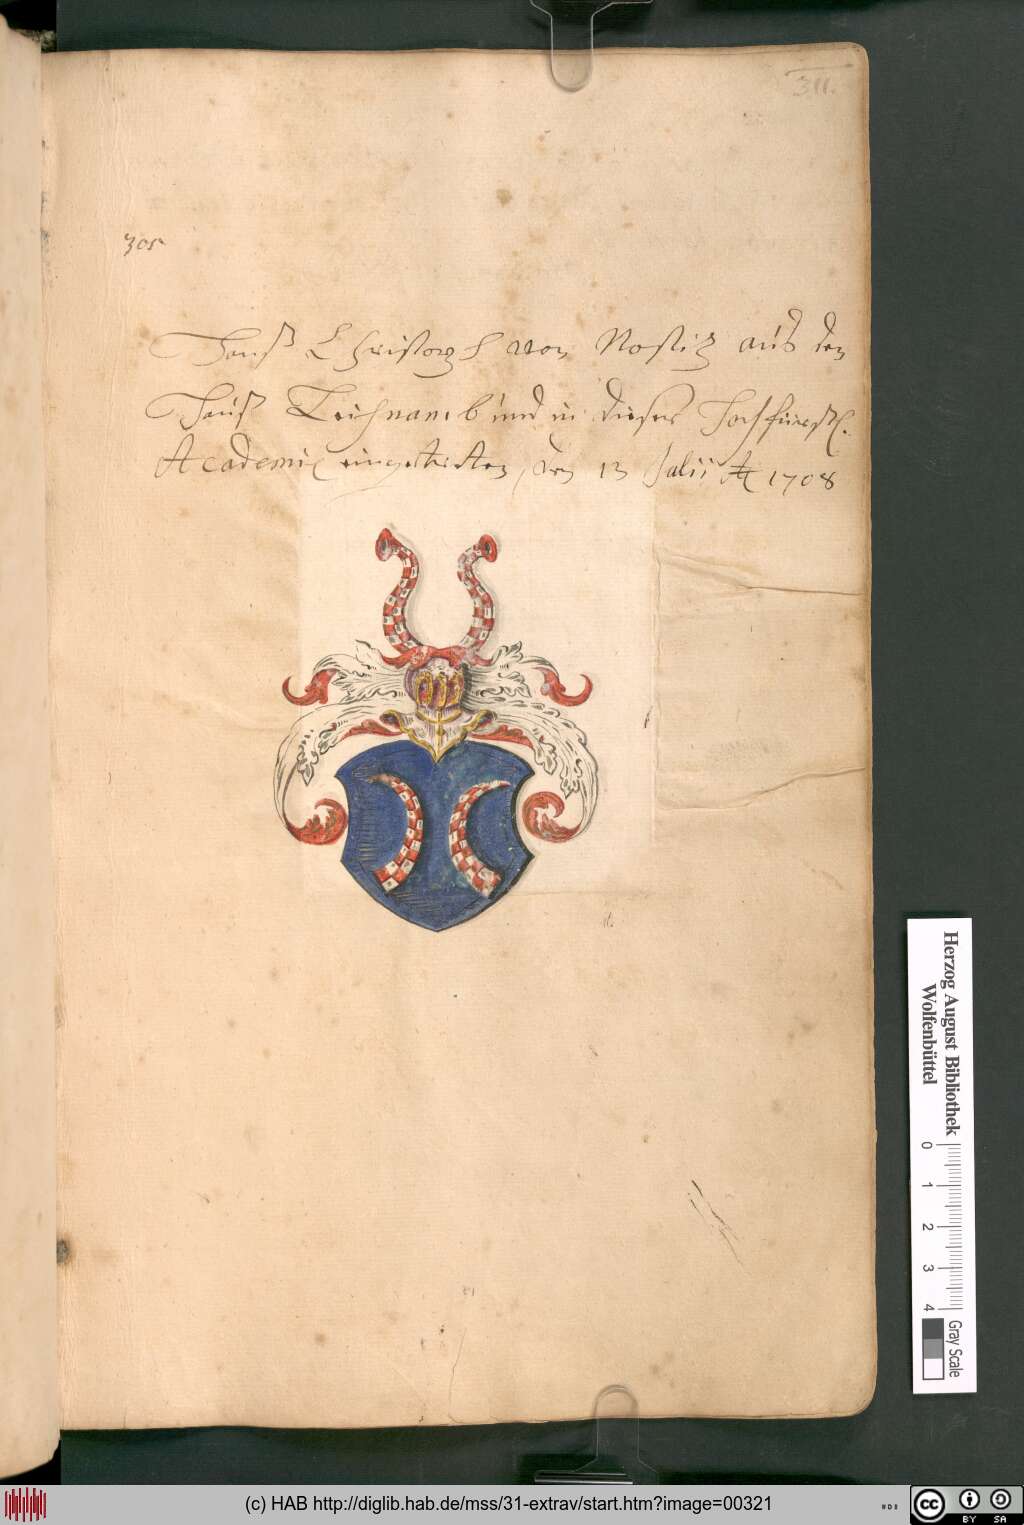 311.
305
Hanß Christoph von Nostitz aus dem
Hauß Leichnam b und in dieses Hochfürstl.
Academie eingetretten, den 13 Julii A 1708
Herzog August Bibliothek
Wolfenbüttel
0 1 2 3 4
Gray Scale
(c) HAB http://diglib.hab.de/mss/31-extrav/start.htm?image=00321
cc BY SA